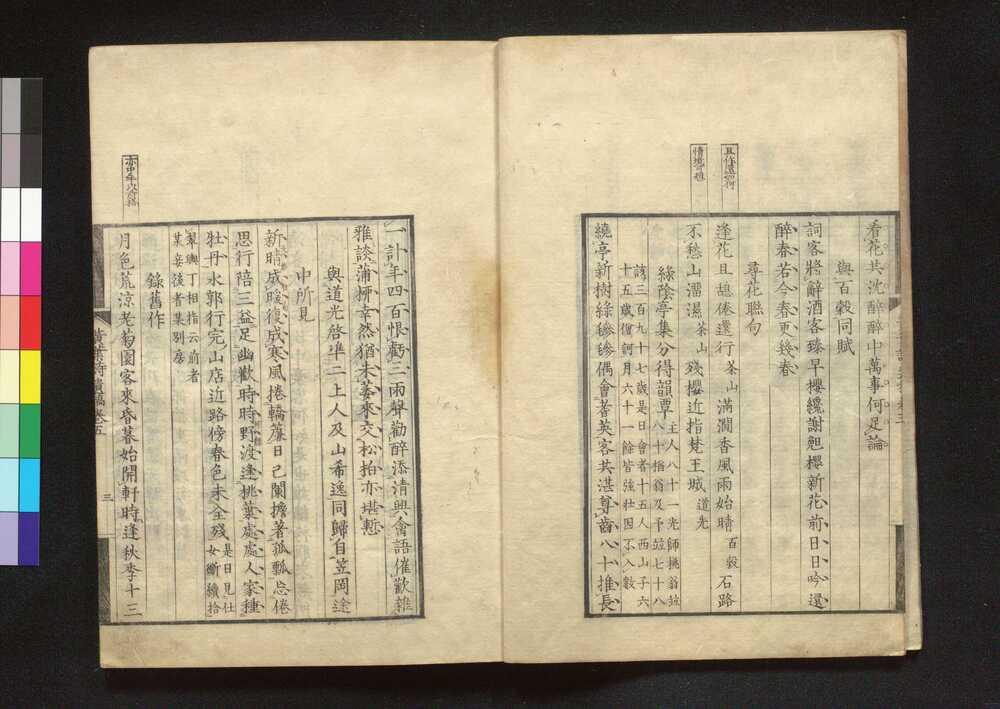 看花共沈醉醉中萬事何足論
與百穀同賦
詞客將辭酒客臻早櫻纔謝兠櫻新花前日日吟還
醉春若今春更幾春
尋花聯句
逢花且趂倦還行茶山滿澗香風雨始晴百穀石路
不愁山溜濕茶山殘櫻近指梵王城道光
綠陰亭集分得韻覃
主人八十一光師挑翁竝
八十楷翁及予竝七十八
諺三百九十七歲是日會者十五人西山子六
十五歲僧訶月六十一餘皆強壮因不入數
繞亭新樹綠毿毿偶會耆英客共湛尊齒八十推長
一計年四百恨虧三兩聲勸醉添清興禽語催歡雜
雅談蒲柳幸然猶未萎來交松柏亦堪慙
與道光啓準二上人及山希逸同歸自笠岡途
中所見
新晴成暖復成寒風捲轎簾日己闌擔著孤瓢忘倦
思行陪三益足幽歡時時野渡逢桃葉處處人家種
牡丹水郭行完山店近路傍春色未全殘
是日見仕
女斷續拾
翠輿丁相指云前者
某妾後者某別房
錄舊作
月色荒涼老菊園客來昏暮始開軒時逢秋季十三
黃葉夕陽村舍詩遺稿卷五
三